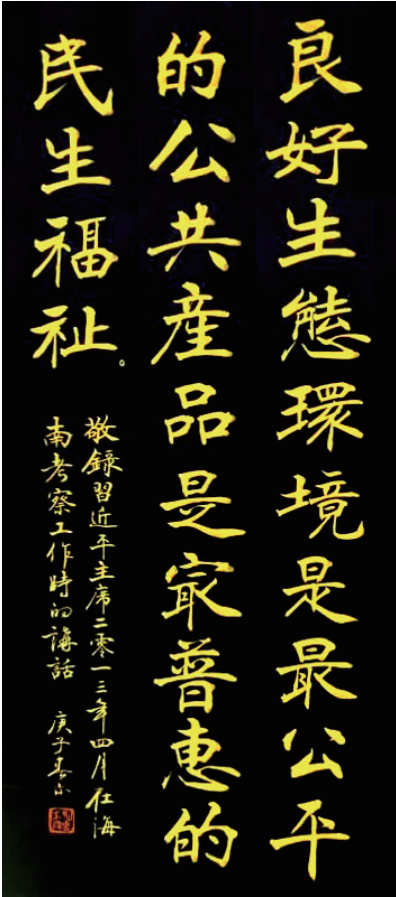 良好生態環境是最公平
的公共産品是㝡普惠的
民生福祉。
敬錄習近平主席二零一三年四月在海
南考察工作時的講話 庚子春